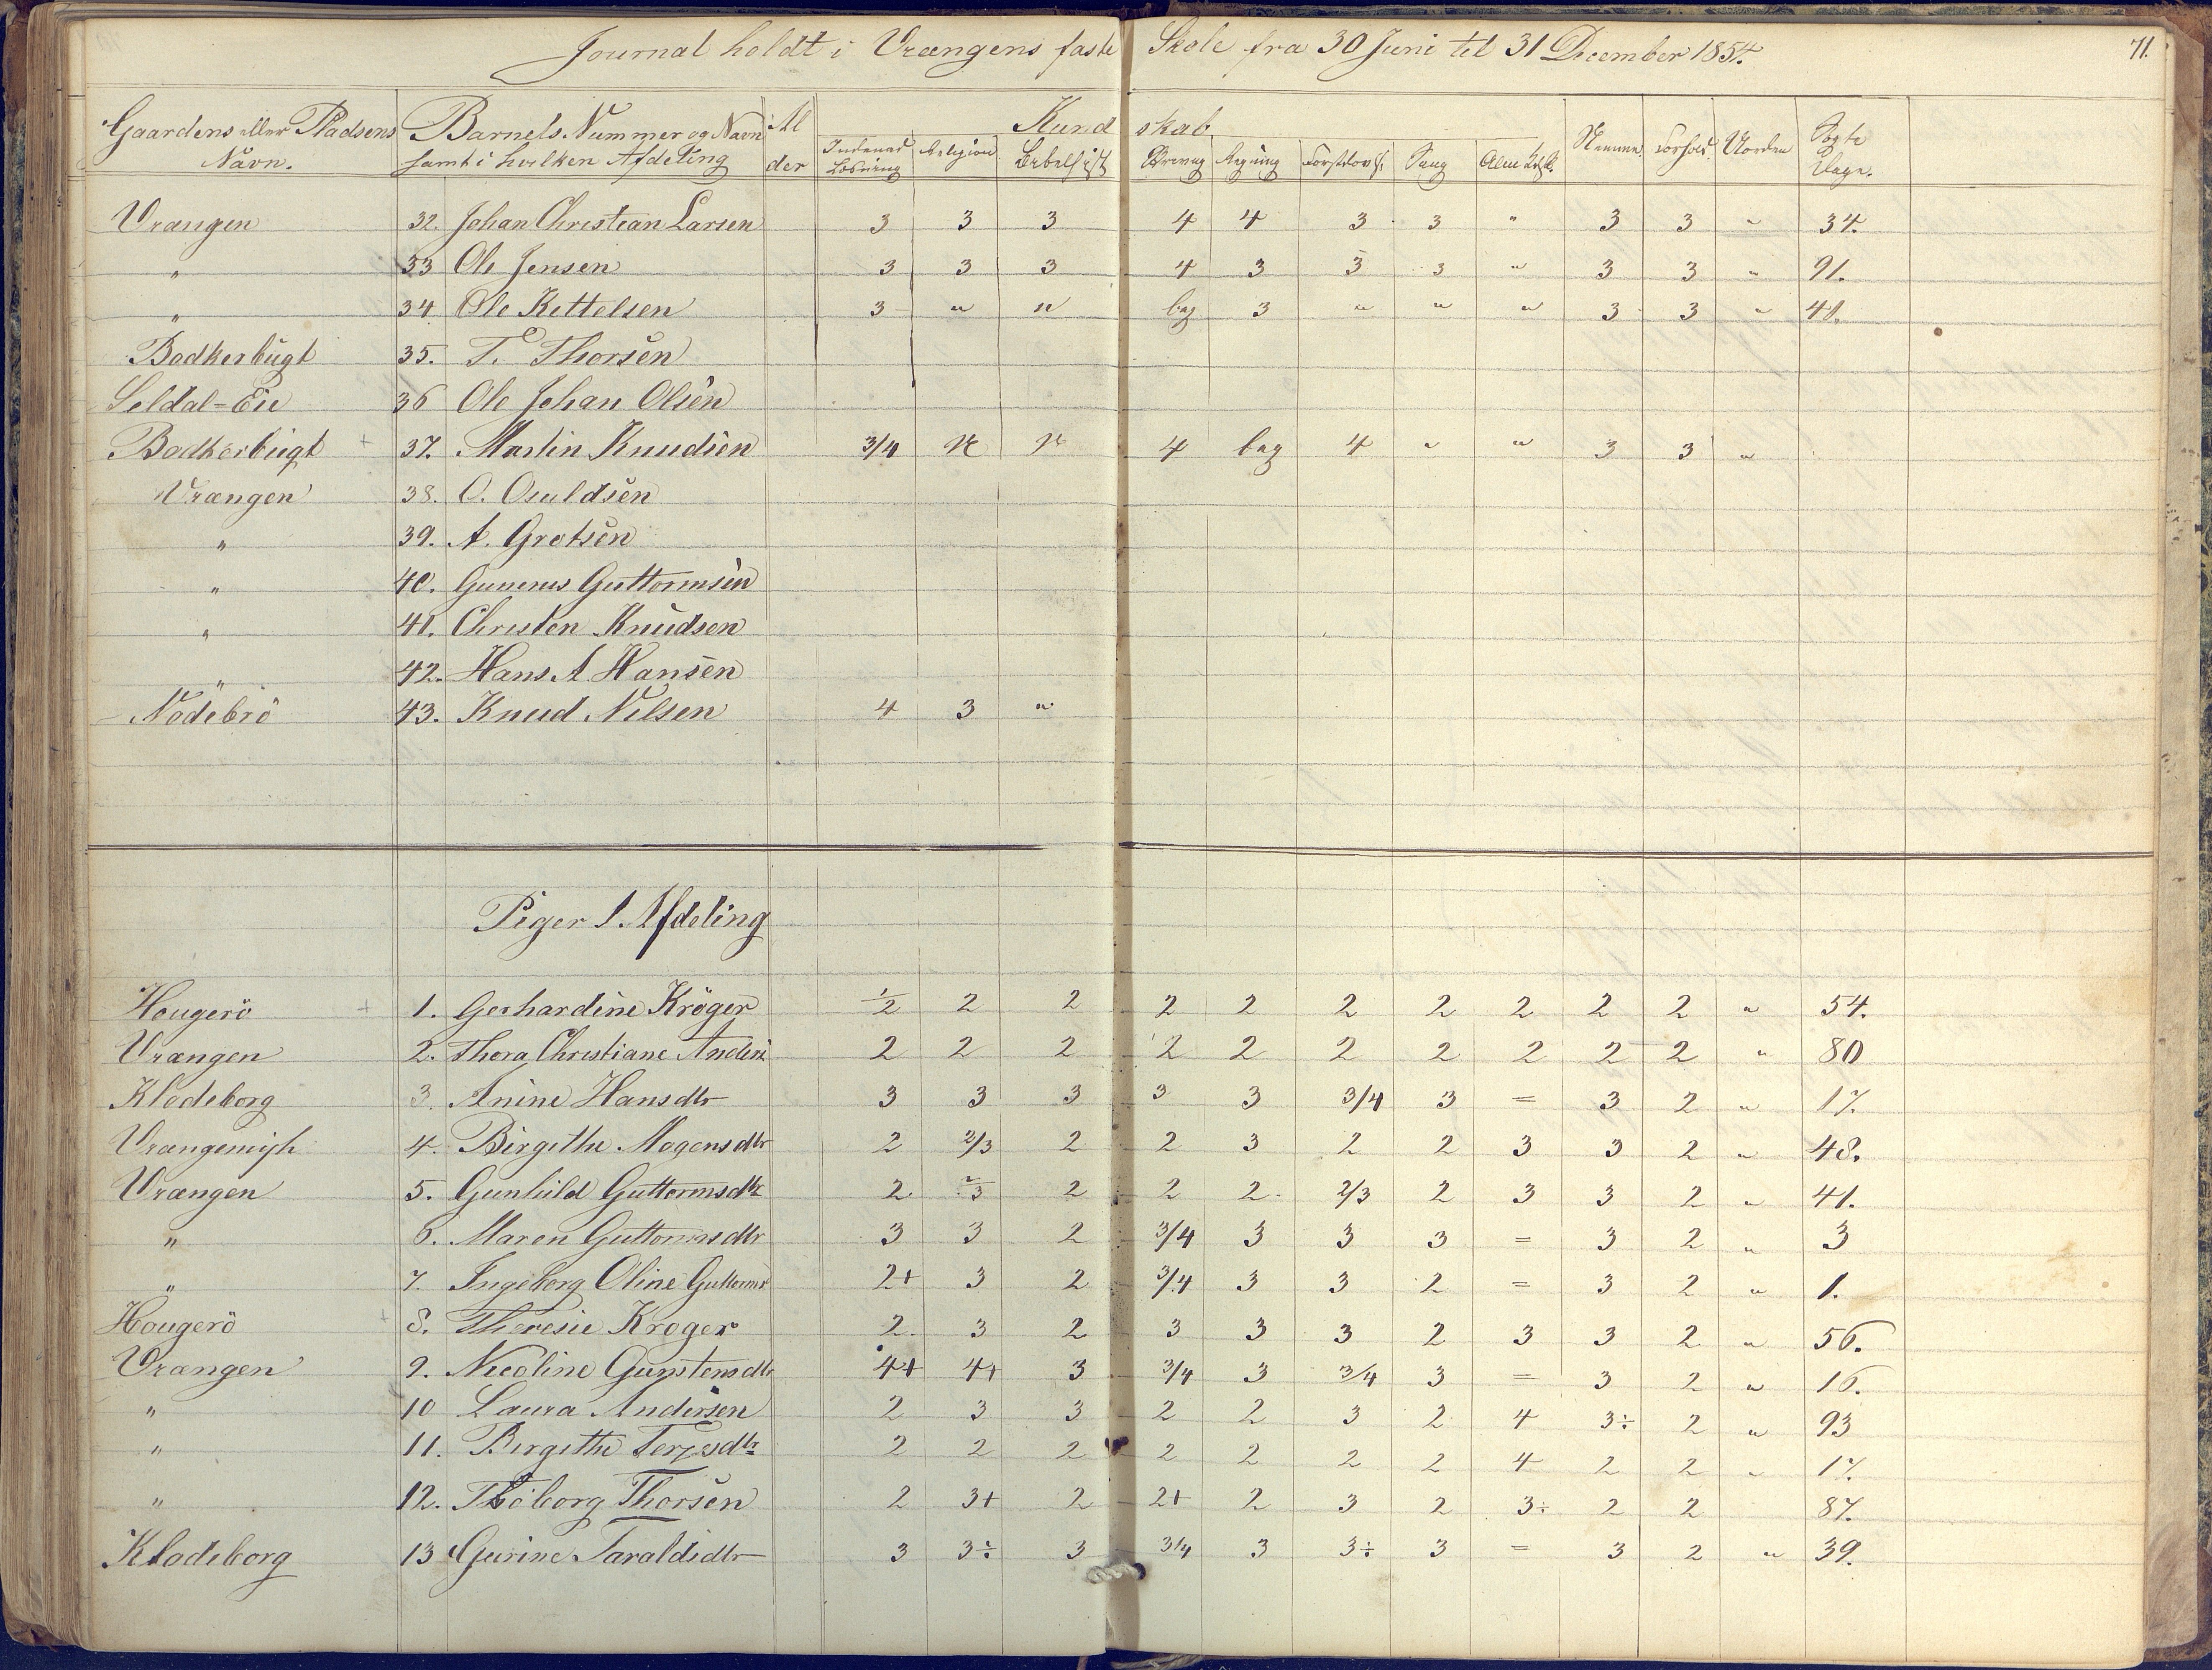 Journal holdt i Vrængens faste Skole fra 30 Juni til 31 December 1854.
71.
Gaardens eller Pladsens Navn. Barnets Nummer og Navn samt i hvilken Afdeling Alder Kundskab
Indenad Læsning Religion Bibelhist Skrivng Regning Forstdøv. Sang Alm Kdsk. Nemme. Forhold. Uorden Søgte Dage.
Vrængen 32. Johan Christian Larsen 3 3 3 4 4 3 3 " 3 3 " 34.
" 33 Ole Jensen 3 3 3 4 3 3 3 " 3 3 " 91.
" 34 Ole Kettelsen 3 " " beg 3 " " " 3 3 " 48.
Bodkerbugt 35. T. Thorsen
Seldal-Eie 36 Ole Johan Olsen
Bodkerbugt + 37. Martin Knudsen 3/4 4 beg 4 " " 3 3 "
Vrængen 38. O. Osuldsen
" 39. A. Grotsen
" 40. Gunerus Guttormsen
" 41. Christen Knudsen
" 42. Hans A. Hansen
Nödebrö 43. Knud Nilsen 4 3 "
Piger 1. Afdeling
Hougerö + 1. Gerhardine Kröger 1/2 2 2 2 2 2 2 2 2 2 " 54.
Vrængen 2. Thora Christiane Anders 2 2 2 2 2 2 2 2 2 2 " 80
Klodeborg 3. Anine Hansdtr 3 3 3 3 3 3/4 3 = 3 2 " 17.
4. Birgithe Mogensdtr 2 2/3 2 2 3 2 2 3 3 2 " 48.
Vrængen 5. Gunhild Guttormsdtr 2 2/3 2 2 2 2/3 2 3 3 2 " 41.
" 6. Maren Guttormsdtr 3 3 2 3/4 3 3 3 = 3 2 " 3
" 7. Ingeborg Oline Guttorms 2+ 3 2 3/4 3 3 2 = 3 2 " 1.
Hougerö + 8. Theresie Kroger 2 3 2 3 3 3 2 3 3 2 " 56.
Vrængen 9. Nicoline Gunstensdtr 4+ 4+ 3 3/4 3 3/4 3 = 3 2 " 16.
" 10 Laura Andersen 2 3 3 2 2 3 2 4 3÷ 2 " 93
" 11. Birgithe Terjesdtr 2 2 2 2 2 2 2 4 2 2 " 17.
" 12. Thoborg Thorsen 2 3+ 2 2+ 2 3 2 3÷ 2 2 87.
Klodeborg 13 Gurine Taraldsdtr 3 3÷ 3 3/4 3 3÷ 3 = 3 2 " 39.